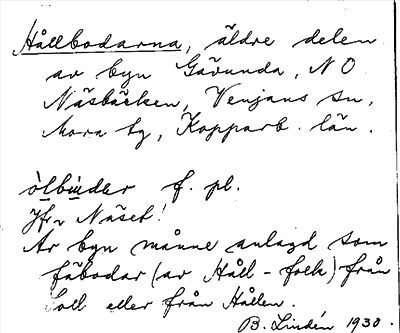 Hållbodarna, äldre delen
av byn Gävunda, NO
Näsbäcken, Venjans sn,
Mora tg, Kopparb. län.
òlbùder f. pl.
Jfr Näset!
Är byn månne anlagd som
fäbodar (av Håll-folk) från
Soll eller från Hållen.
B. Lindén 1930.